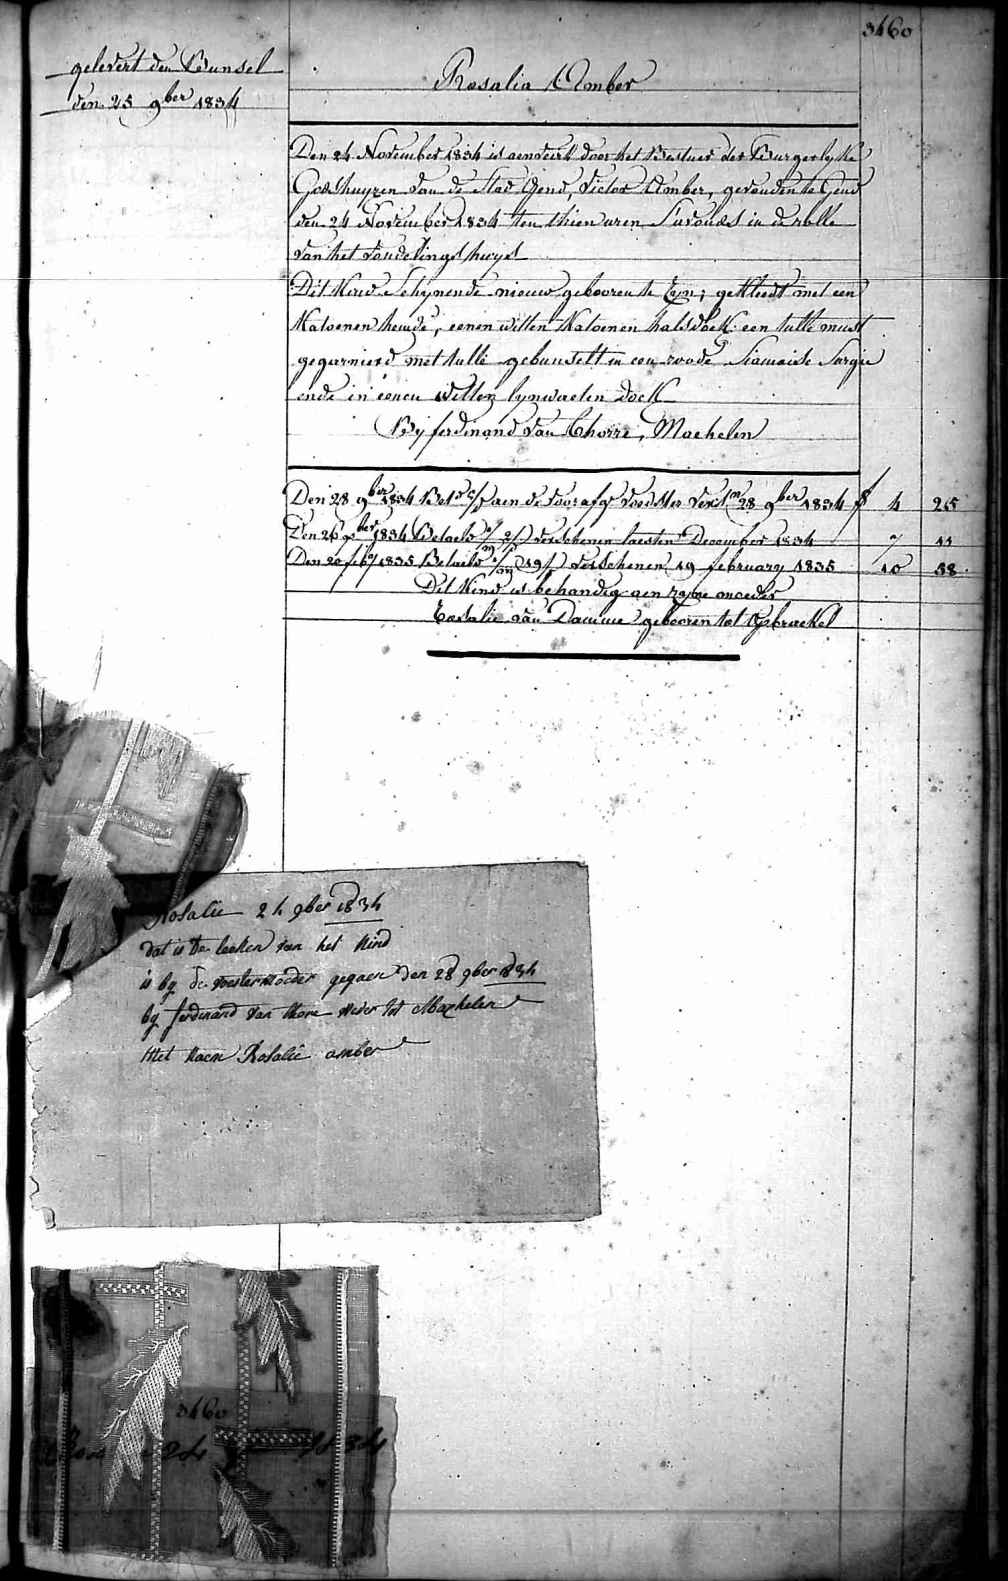 3460
gelevert den Bunsel
den 25 9ber 1834
Rosalia Amber
Den 24 November 1834 is aenveird door het Bestuer der Burgerlyke
Godshuyzen van de stad Gend, Victor Amber, gevonden te Gend
den 24 November 1834 ten thien uren s'avonds in de rolle
van het vondelings huys
Dit Kind schynende nieuw gebooren te zyn; gekleed met een
Katoenen hemde, eenen witten Katoenen halsdoek een tulle muts
gegarnierd met tulle gebunselt in een roode Siamoise Sargie
ende in eenen witten lynwaeten doek
By ferdinand van Thorre, Machelen
Den 28 9ber 1834 Bet aen de voorafg voedster 28 9ber 1834 f 4 25
Den 26 1834 Betaelt verschenen laesten December 1834 7 11
Den 20 feby 1835 Betaelt 19 verschenen 19 february 1835 10 58
Dit Kind is behandig aen zyne moeder
van Damme gebooren tot Opbrackel
Rosalie 24 9ber 1834
dat is de teeken van het Kind
is by de voestermoeder gegaen den 28 9ber 1834
by ferdinand van thore wever tot Machelen
Met naem Rosalie amber
3460
24 1834